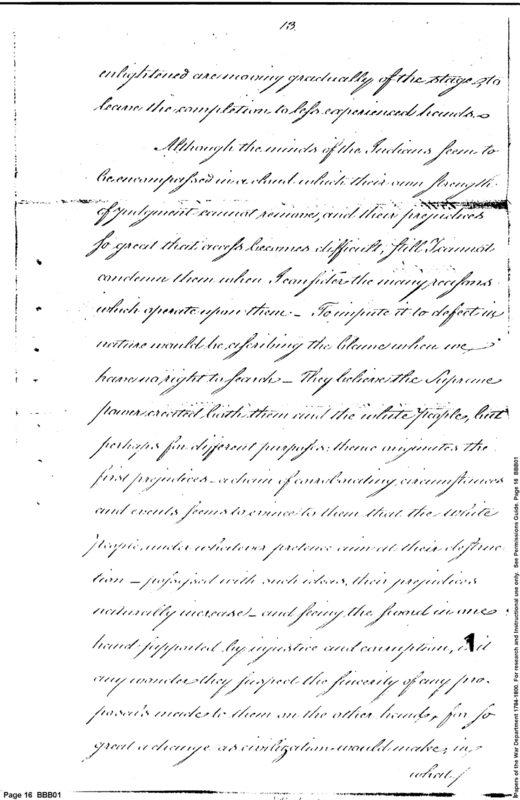 13.
enlightened are moving gradually of the stage, to
leave the completion to less experienced hands.
Although the minds of the Indians seem to
be encompassed in a cloud which their own strength
of judgment cannot remove, and their prejudices
so great that access becomes difficult, still I cannot
condemn them when I consider the many reasons
which operate upon them - To impute it to defect in
nature would be ascribing the blame when we
have no right to search - They believe the Supreme
power created both them and the white people, but
perhaps for different purposes: thence originates the
first prejudices - a chain of corroborating circumstances
and events seems to evince to them that the white
people, under whatever pretence aim at their destruc
tion - possessed with such ideas, their prejudices
naturally increase - and seeing the sword in one
hand supported by injustice and corruption, is it
any wonder they suspect the sincerity of any pro-
posals made to them on the other hand, for so
great a change as civilization would make, in
what /
1
Page 16 BBB01
Papers of the War Department 1784-1800. For research and instructional use only. See Permissions Guide. Page 16 BBB01